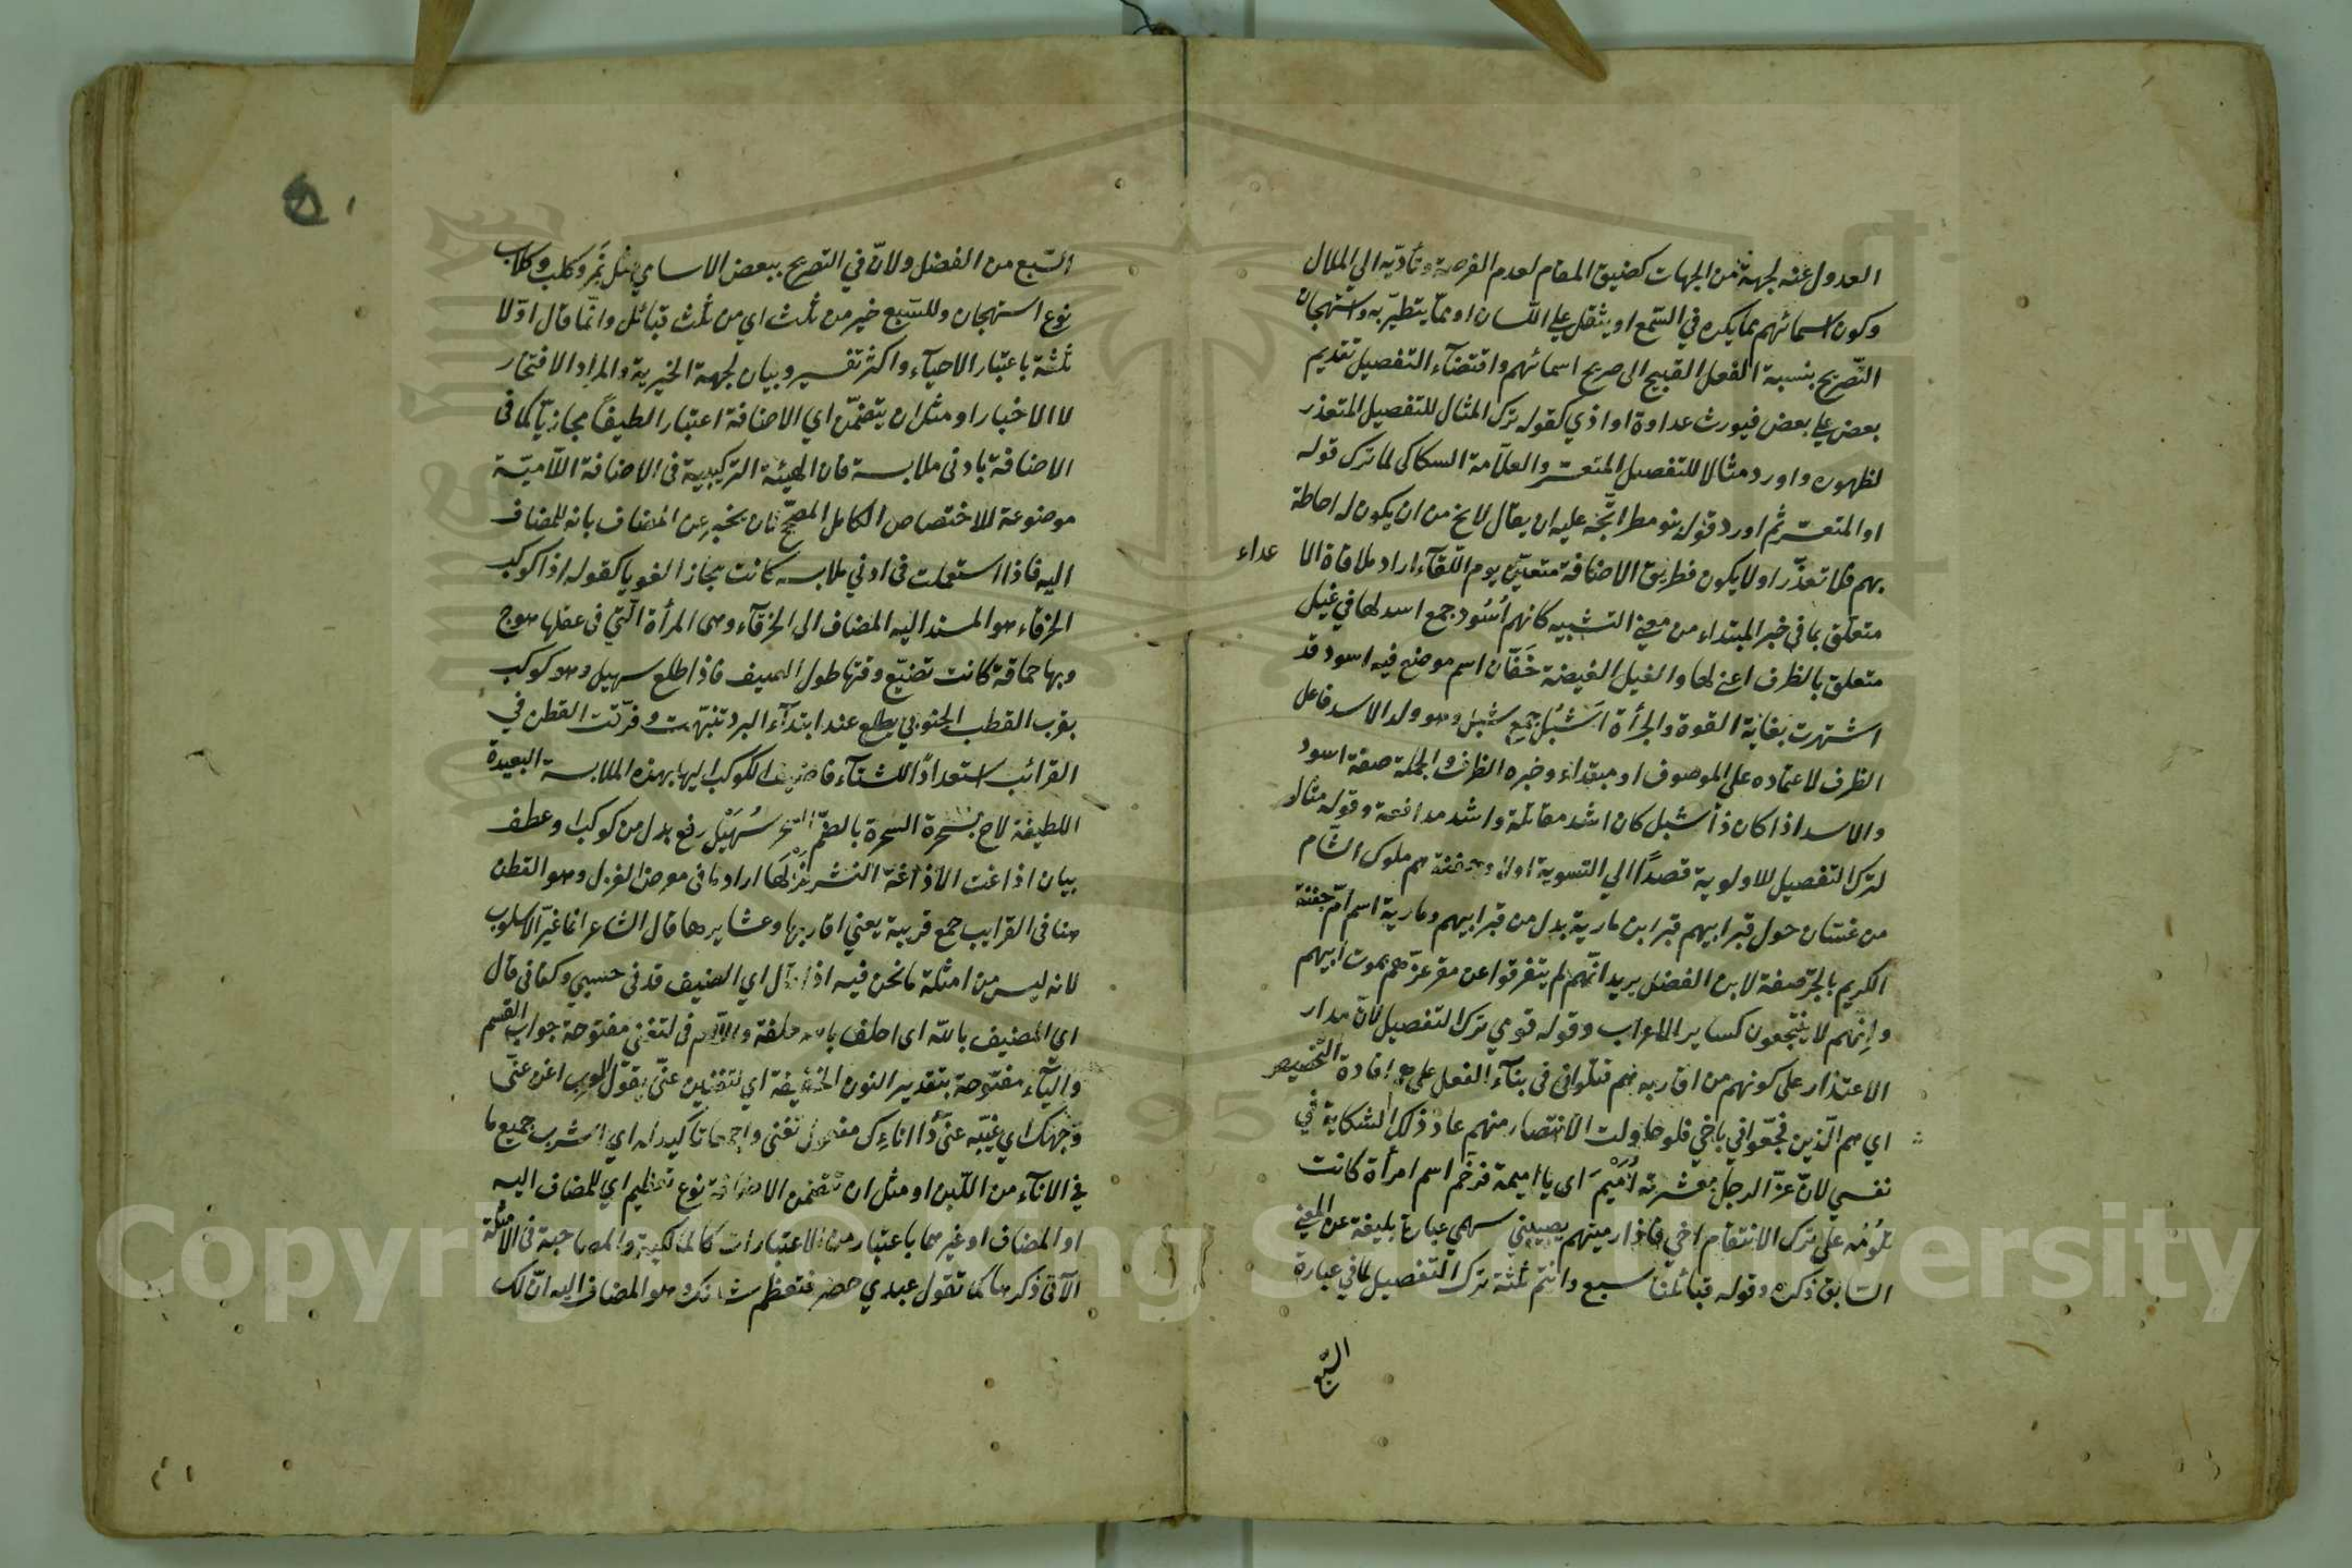 العدول عنه لجهة من الجهات كضيق المقام لعدم الفرصة وتأديه الي الملال
وكون اسمائهم مما يكره في السّمع او يثقل علي اللسان او ممّا يتطيّر به واستهجان
التّصريح بنسبة الفعل القبيح الى صريح اسمائهم واقتضآء التفصيل تقديم
بعض علي بعض فيورث عداوة او اذي كقوله ترك المثال للتفصيل المتعذر
لظهوره واورد مثالا للتفصيل المتعسّر والعلاّمة السكاكى لما ترك قوله
او المتعسّر ثم اورد قوله بنو مطر اتّجه عليه ان يقال لا يخ من ان يكون له احاطة
بهم فلا تعذّر او لا يكون فطريق الاضافة متعيّن يوم اللّقآء اراد ملاقاة الا عداء
متعلّق بما في خبر المبتداء من معني التشبيه كانهم اُسُود جمع اسد لها في غيل
متعلق بالظرف اعني لها والغيل الغيضة خَفّان اسم موضع فيه اسود قد
اشتهرت بغاية القوة والجرأة اَشْبُل جمع شبل وهو ولد الاسد فاعل
الظرف لاعتماده على الموصوف او مبتداء وخبره الظرف والجملة صفة اسود
والاسد اذا كان ذا شبل كان اشد مقاتلة واشد مدافعة وقوله مثال
لترك التفصيل للاولوية قصداً الي التسوية اولاد جفنة هم ملوك الشّام
من غسّان حول قبر ابيهم قبر ابن مارية بدل من قبر ابيهم ومارية اسم امّ جفنة
الكريم بالجرّ صفة لابن المفضل يريد انّهم لم يتفرقوا عن مقر عزّهم بموت ابيهم
وانّهم لا ينتجعون كساير الاعراب وقوله قومي ترك التفصيل لانّ مدار
الاعتذار على كونهم من اقاربه هم قتلوا في بنآء الفعل على هم افادة التّخصيص
اي هم الّذين فجّعوا في باخي فلو حاولت الانتصار منهم عاد ذلك الشكاية في
نفسي لانّ عزّ الرجل بعشيرته اُمَيْمَ اى يا اميمة فرخّم اسم امرأة كانت
تلومُه علي ترك الانتقام اخي فاذا رميتهم يصيبني سهمي عبارة بليغة عن المعني
السّابق ذكره وقوله قبائلنا سبع وانتم ثلثة ترك التفصيل لما في عبارة
السّبع
السّبع من الفضل ولانّ في التصريح ببعض الاسامي مثل نَمِر وكلب وكلاب
نوع استهجان وللسّبع خير من ثلث اي من ثلث قبائل وانّما قال اوّلا
ثلثة باعتبار الاحيآء واكثر تفسير وبيان لجهة الخيرية والمراد الافتخار
لا الاخبار او مثل ان يتضمّن اي الاضافة اعتبارا لطيفاً مجازيّا كما فى
الاضافة بادنى ملابسة فان الهيئة التركيبية فى الاضافة اللّاميّة
موضوعة للاختصاص الكامل المصحّح لان يخبر عن المضاف بانه للمضاف
اليه فاذا استعملت فى ادني ملابسه كانت مجازا لغويا كقوله اذا كوكب
الخرقاء هو المسند اليه المضاف الى الخرقآء وهى المرأة الّتي فى عقلها هوج
وبها حماقة كانت تضيّع وقتها طول الصيف فاذا طلع سهيل وهو كوكب
بقرب القطب الجنوبي يطلع عند ابتدآء البرد تنبّهت وفرّقت القطن في
القرائب استعداداً للشتآء فاضيف الكوكب اليها بهذه الملابسة البعيدة
اللطيفة لاح بسحرة السحرة بالضّم السّحر سُهَيْل رفع بدل من كوكب او عطف
بيان اذاعت الاذاعة النشر غَزْلَها اراد ما فى معرض الغزل وهو القطن
هنا فى القرايب جمع قريبة يعني اقاربها وعشايرها قال الشاعر انما غيّر الاسلوب
لانه ليس من امثلة ما نحن فيه اذا قال اي الضيف قدنى حسبي وكفانى قال
اى المضيف بالله اى احلف بالله حلفة واللام فى لتغني مفتوحة جواب القسم
واليآء مفتوحة بتقدير النون الخفيفة اي لتغنين عنّي يقول العرب اغن عنّى
وجهك اي غيّبه عنّي ذا انائك مفعول تغنى واجمعا تاكيد له اي اشرب جميع ما
في الانآء من اللّبن او مثل ان تتضمن الاضافة نوع تعظيم اي للمضاف اليه
او المضاف او غيرهما باعتبار من الاعتبارات كالمالكية والمصاحبة فى الامثلة
الآتى ذكرها كما تقول عبدي حضر فتعظّم شانك وهو المضاف اليه انّ لك
Copyright © King Saud University